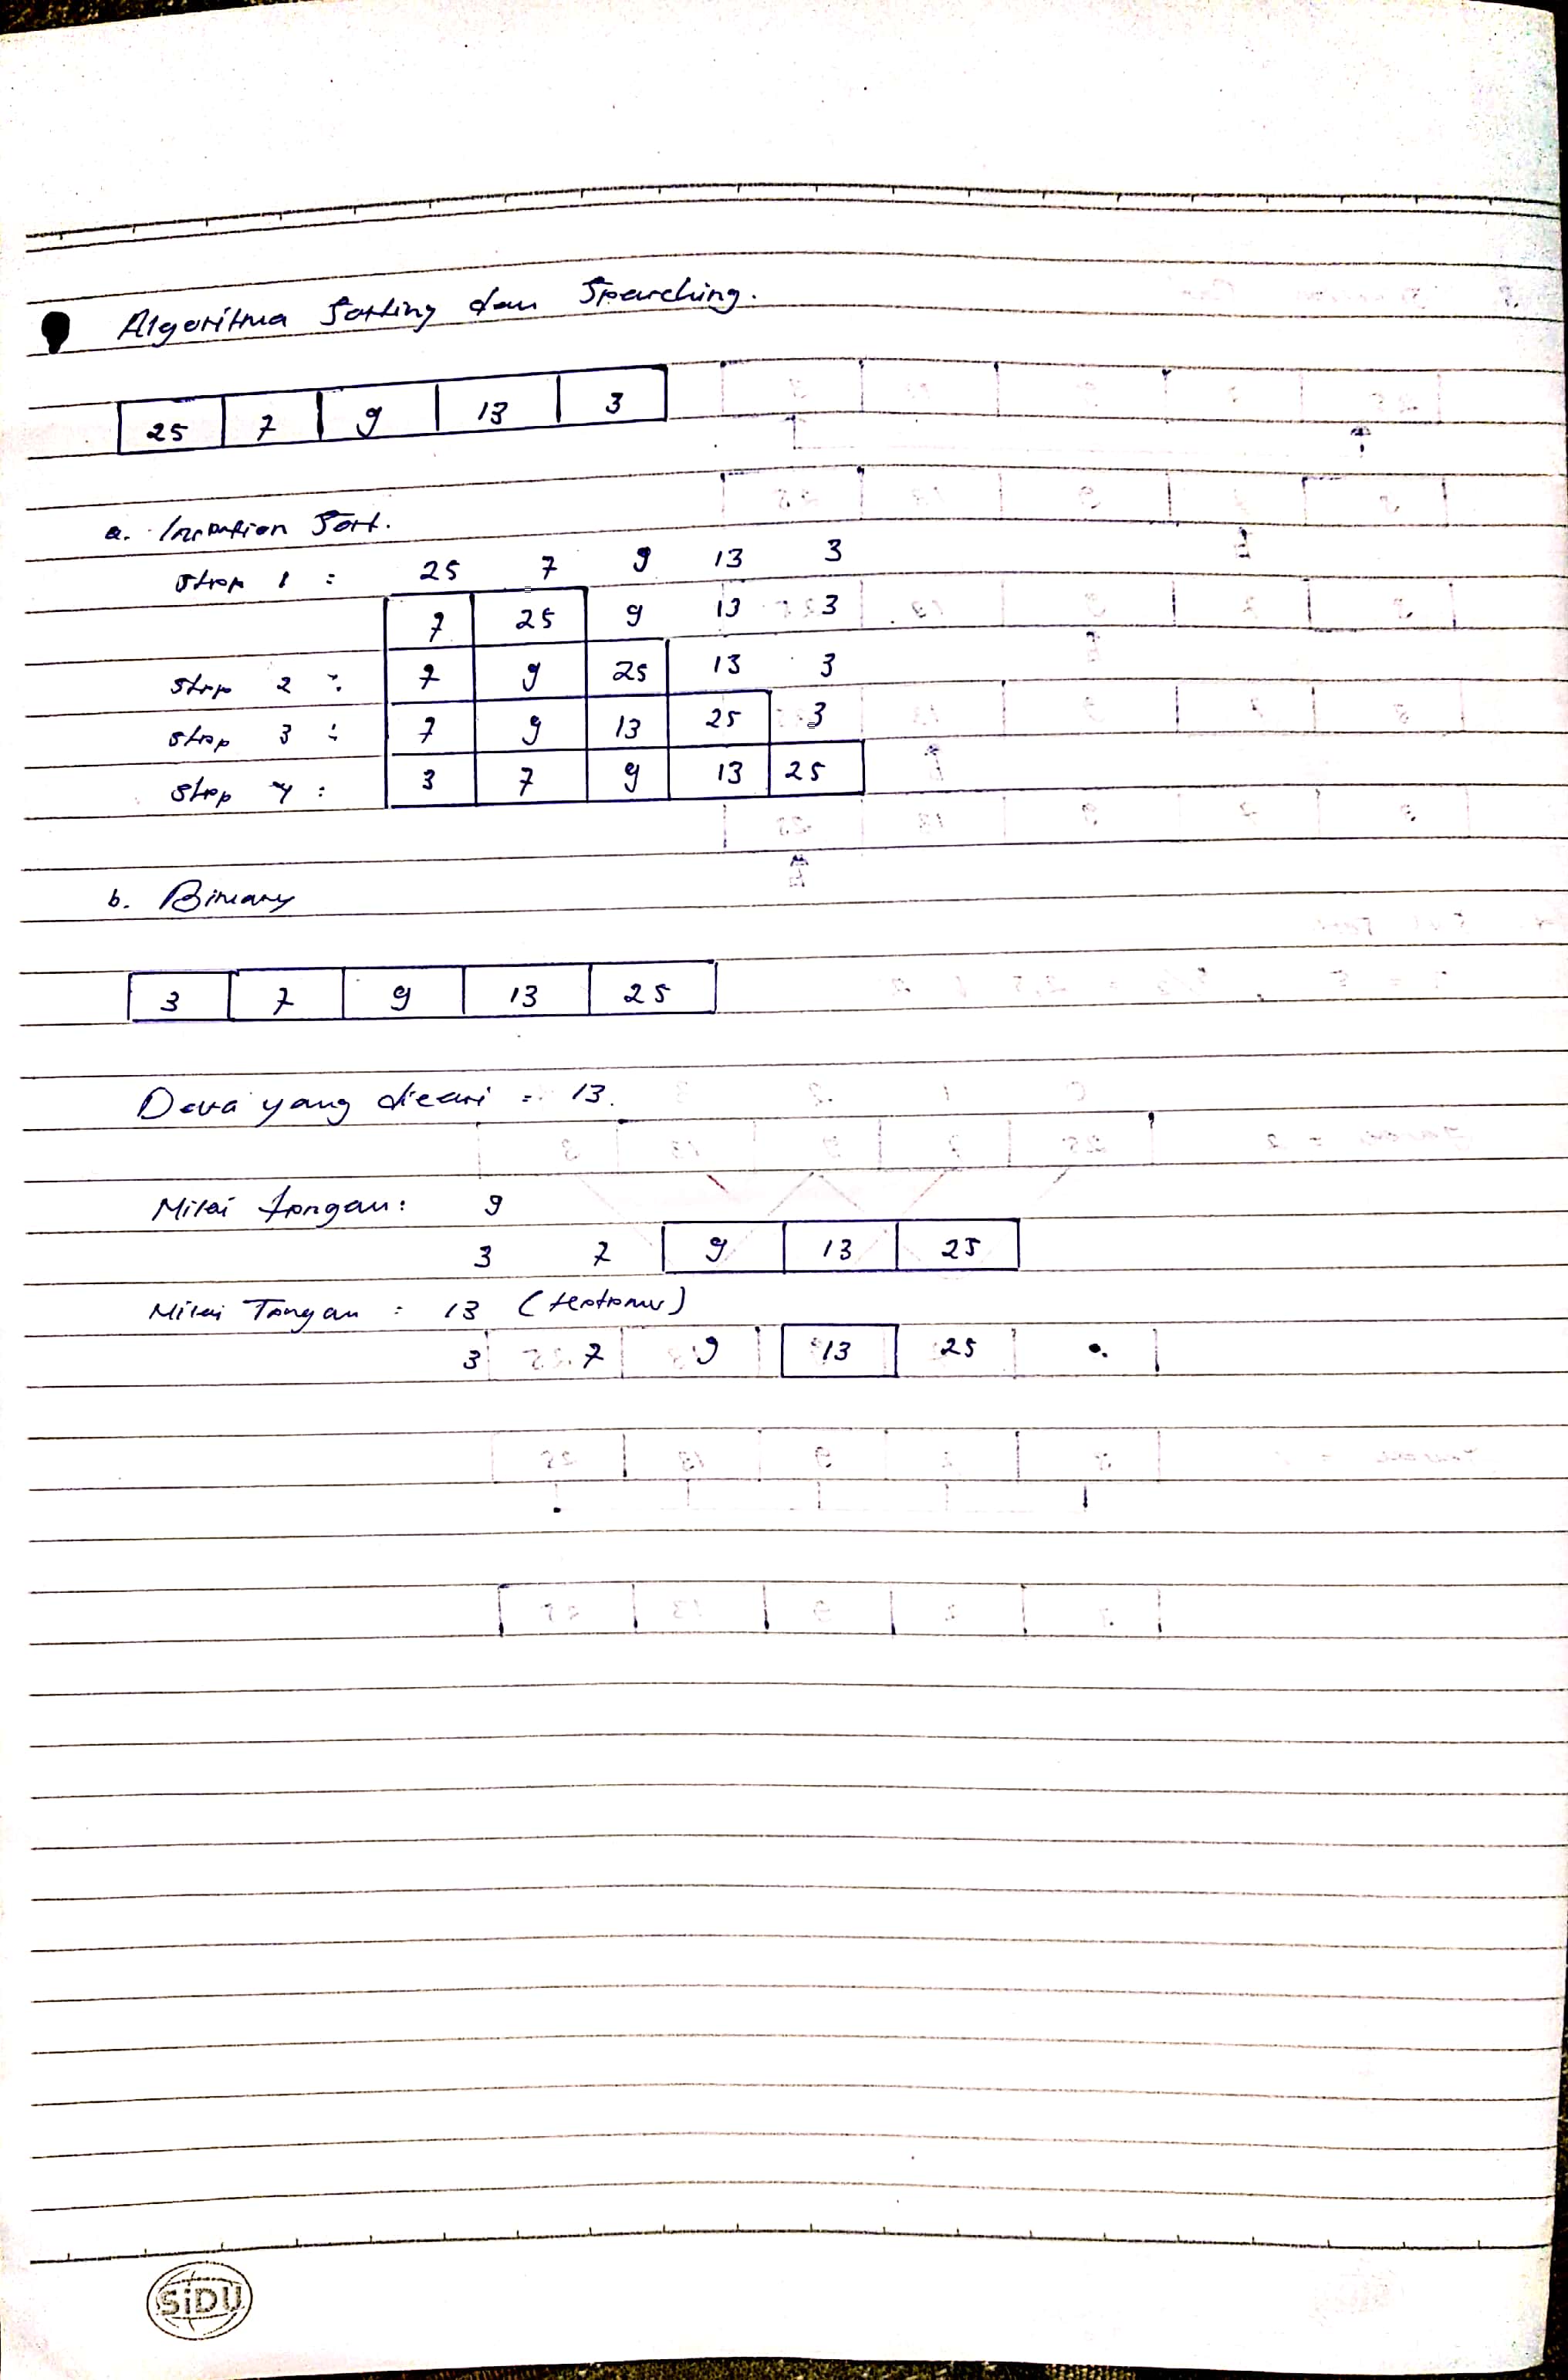 Algoritma Sorting dan Searching.
25 7 9 13 3
a. Insertion Sort.
Step 1 : 25 7 9 13 3
7 25 9 13 3
Step 2 : 7 9 25 13 3
Step 3 : 7 9 13 25 3
Step 4 : 3 7 9 13 25
b. Binary
3 7 9 13 25
Data yang dicari = 13.
Nilai tengah : 9
3 7 9 13 25
Nilai Tengah : 13 (ketemu)
3 7 9 13 25
SiDU